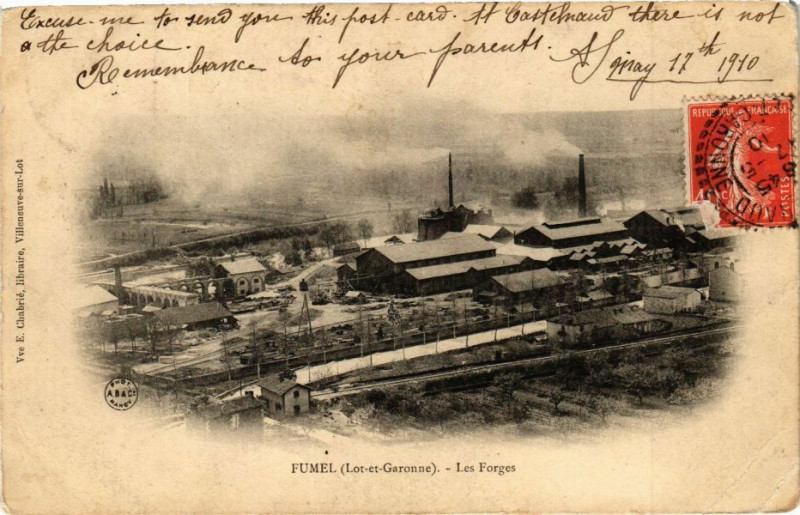 Excuse-me to send you this post-card. At Castelnaud there is not
a the choice.
Remembrance to your parents.
May 17th 1910
REPUBLIQUE FRANÇAISE
POSTES
Vve E. Chabrié, libraire, Villeneuve-sur-Lot
PHOT
A.B & Cie
NANCY
FUMEL (Lot-et-Garonne). - Les Forges